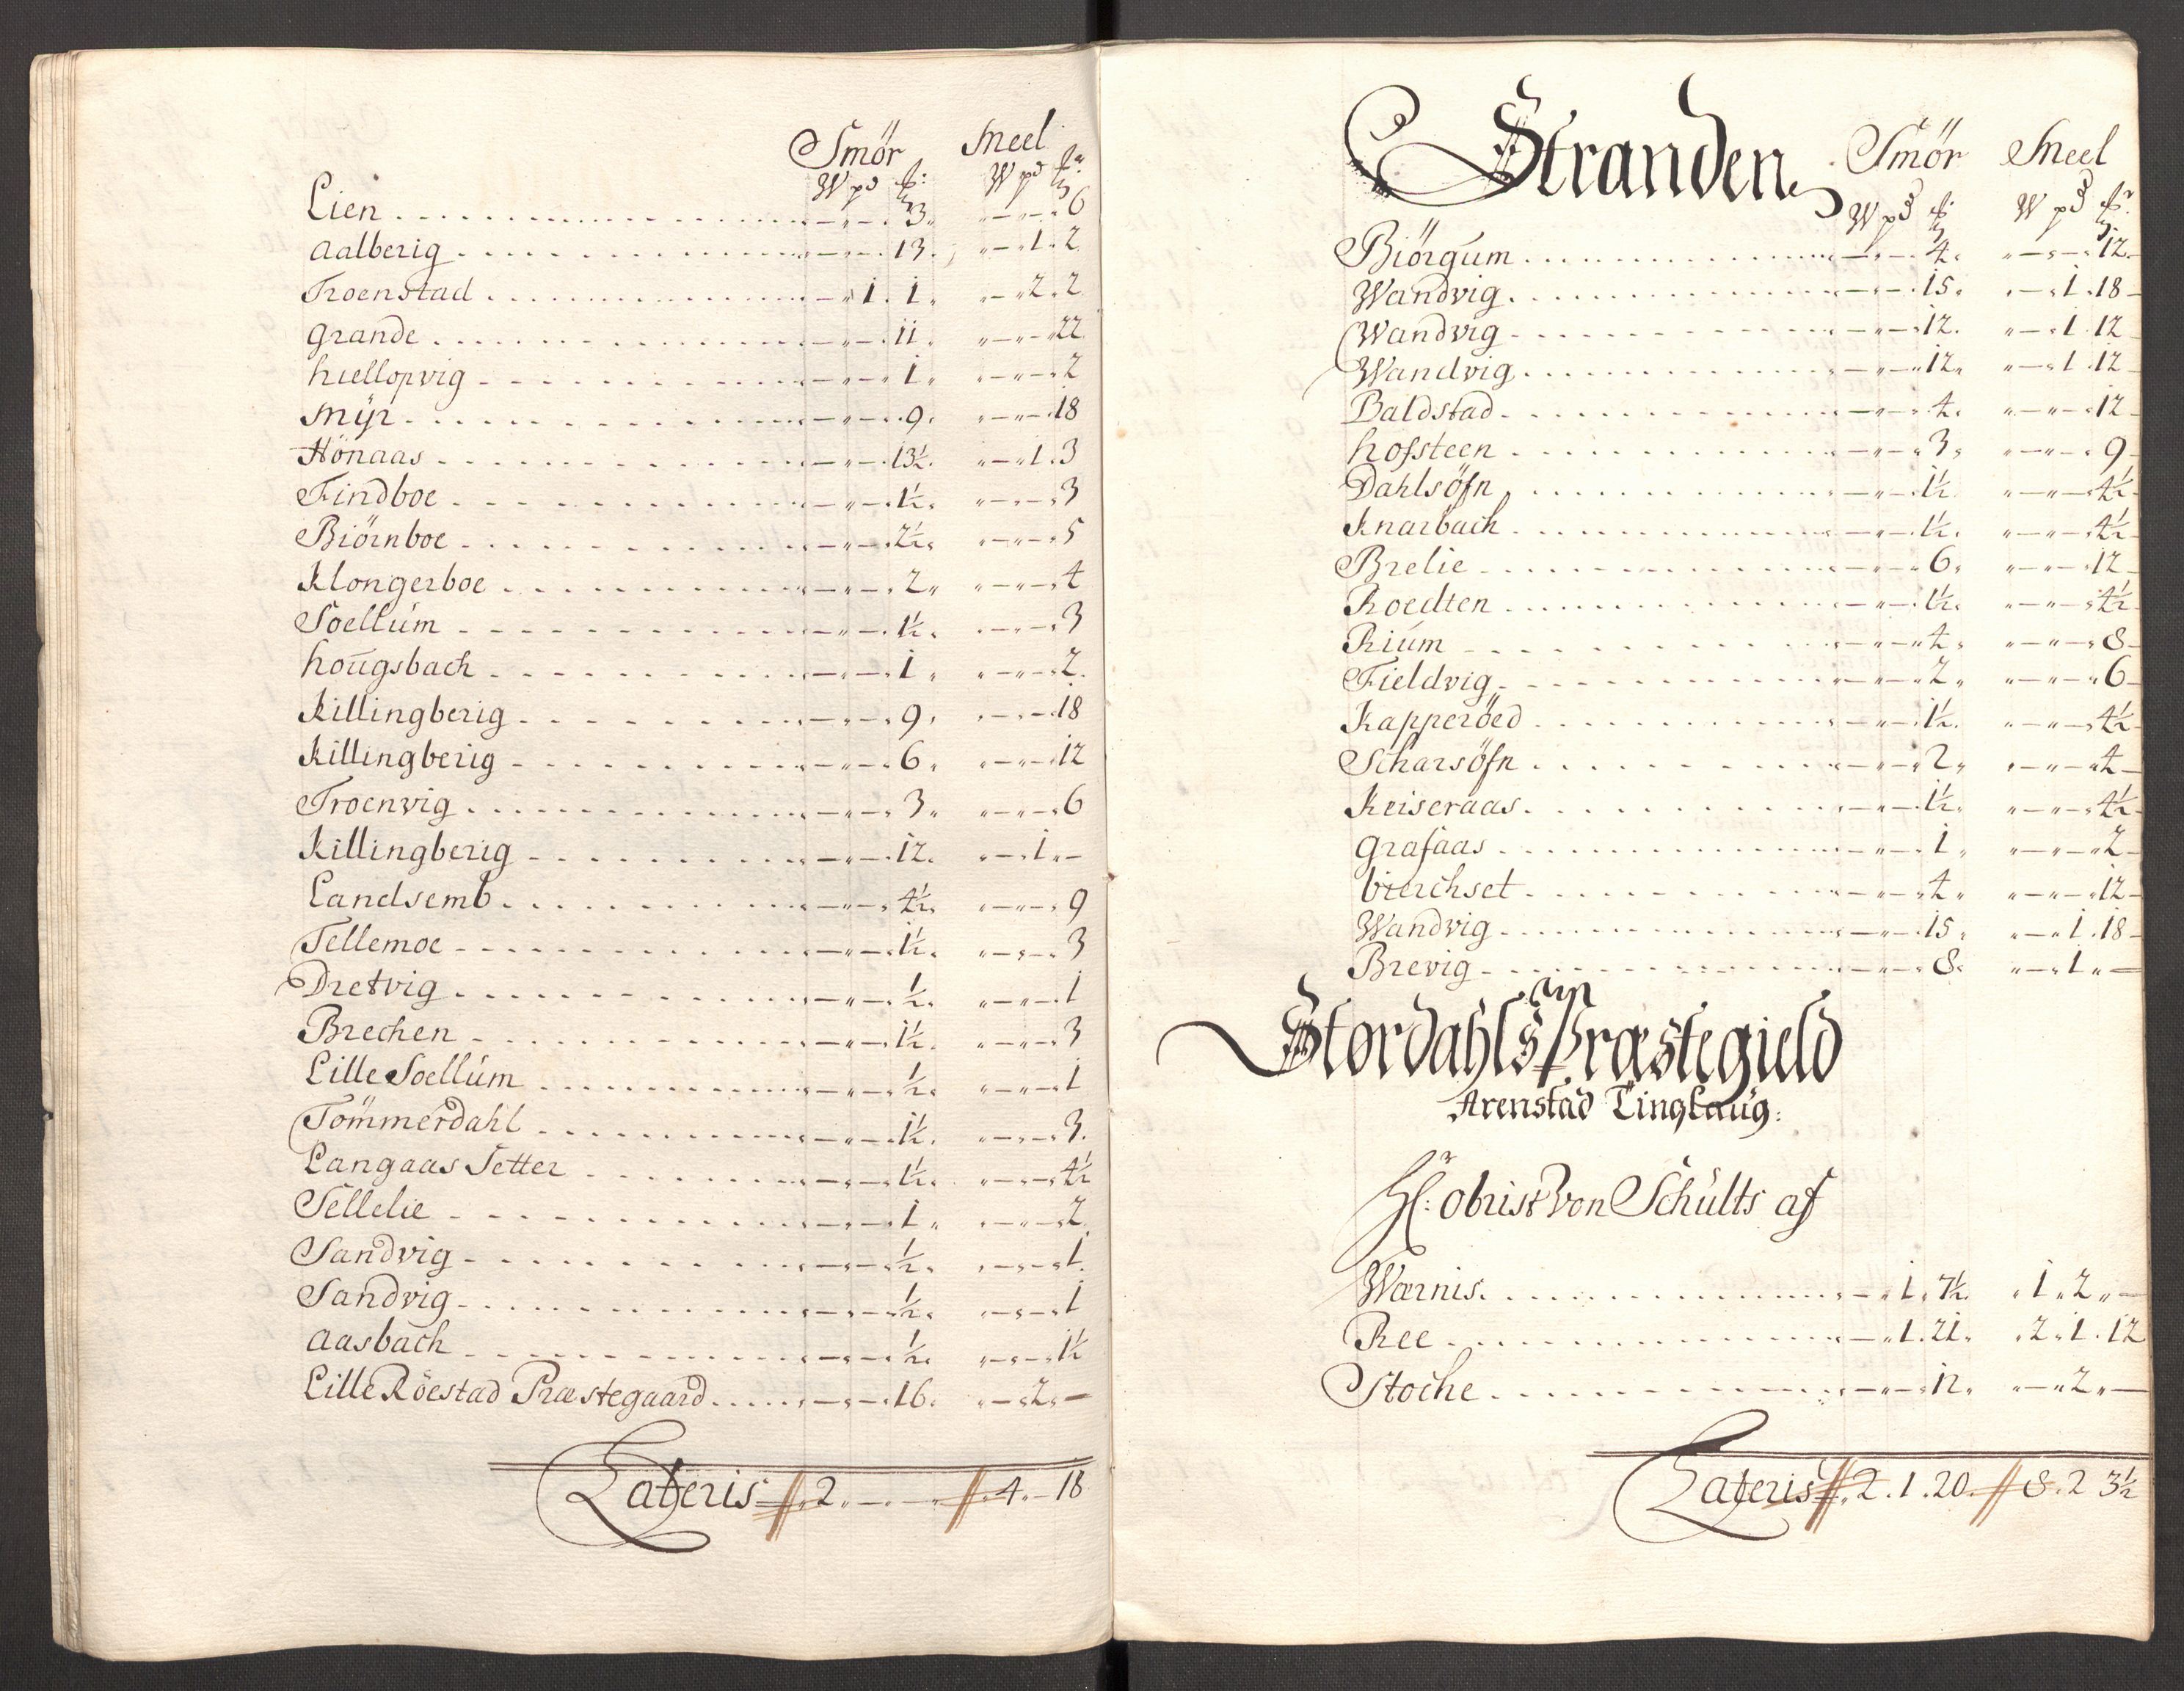 Smör Meel
W pd ℔: W pd ℔r
Lien - " - 3 " " - " - 6
Aalberig - " - 13 " - " 1 . 2
Troenstad - " 1 . 1 " " - " 2 . 2
Grande - " - 11 " - " - 22
Hiellopvig - " - 1 " " - " - 2
Myr - " - 9 " - " - 18
Hönaas - " - 13½ " - " 1 . 3
Findboe - " - 1½ " - " - 3
Biörnboe - " - 2½ " - " - 5
Klongerboe - " - 2 " " - " - 4
Soellum - " - 1½ " - " - 3
Hougsbach - " - 1 " " - " - 2
Killingberig - " - 9 " - " - 18
Killingberig - " - 6 " - " - 12
Troenvig - " - 3 " " - " - 6
Killingberig - " - 12 " - " 1 " -
Landsemb - " - 4½ " - " - 9
Tellemoe - " - 1½ " - " - 3
Dretvig - " - ½ " - " - 1
Brechen - " - 1½ " - " - 3
Lille Soellum - " - ½ " - " - 1
Tömmerdahl - " - 1½ " - " - 3
Langaas Setter - " - 1½ " - " - 4½
Sellelie - " - 1 " " - " - 2
Sandvig - " - ½ " - " - 1
Sandvig - " - ½ " - " - 1
Aasbach - " - ½ " - " - 1½
Lille Röestad Præstegaard - " - 16 " - " 2 " -
Lateris 2 " - " - " 4 " - 18
Stranden Smör Meel
W pd ℔: W pd ℔r
Biörgum - " - 4 " " - " - 12
Wandvig - " - 15 " - " 1 . 18
Wandvig - " - 12 " - " 1 . 12
Wandvig - " - 12 " - " 1 . 12
Baldstad - " - 4 " " - " - 12
Hofsteen - " - 3 " " - " - 9
Dahlsöfn - " - 1½ " - " - 4½
Knarbach - " - 1½ " - " - 4½
Brelie - " - 6 " " - " - 12
Roedten - " - 1½ " - " - 4½
Rium - " - 4 " " - " - 8
Fieldvig - " - 2 " " - " - 6
Kapperöed - " - 1½ " - " - 4½
Scharsöfn - " - 2 " " - " - 4
Keiseraas - " - 1½ " - " - 4½
Grafaas - " - 1 " " - " - 2
Bierchset - " - 4 " " - " - 12
Wandvig - " - 15 " - " 1 . 18
Brevig - " - 8 " - " 1 " -
Stordahls Præstegield
Arenstad Tinglaug:
Hl: Obrist Von Schults af
Wærnis - " 1 . 7½ " 1 " 2 " -
Ree - " 1 . 21 " 2 " 1 . 12
Stoche - " - 12 " - " 2 " -
Lateris 2 . 1 . 20 8 . 2 3½